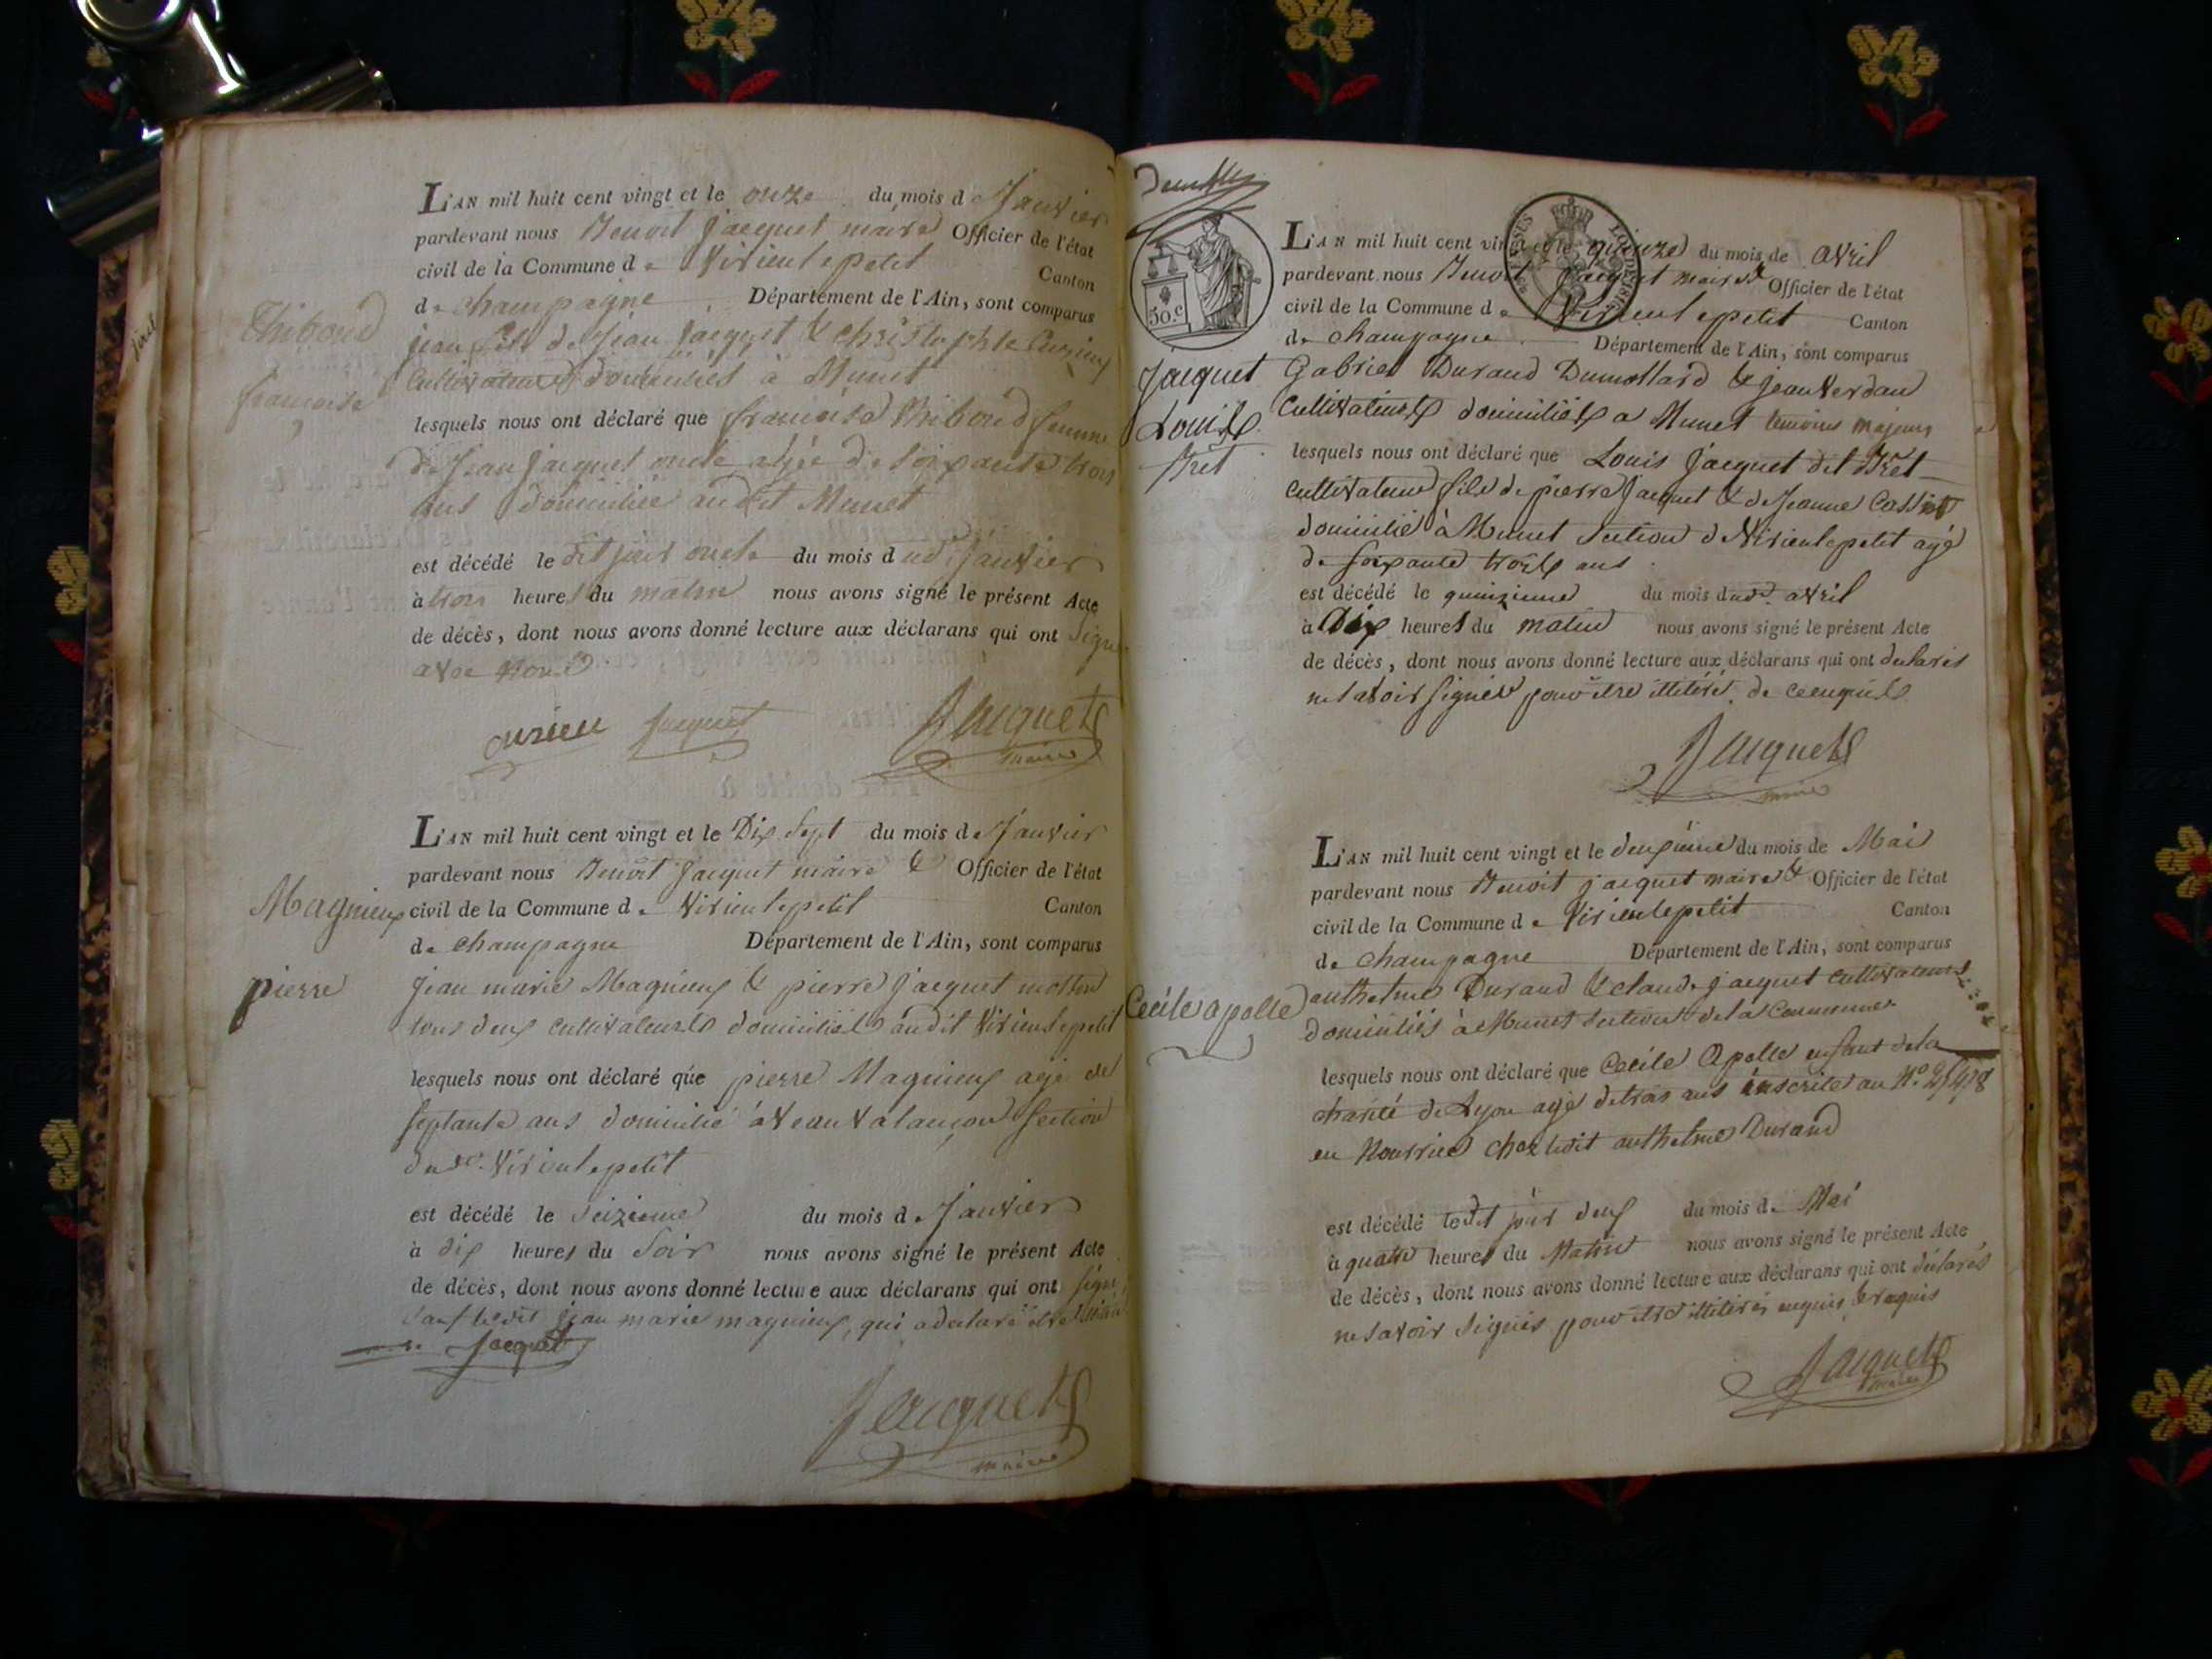 Thiboud
françoise
L'AN mil huit cent vingt et le onze du mois de Janvier
pardevant nous Benoit Jacquet maire Officier de l'état
civil de la Commune de Virieulepetit Canton
de champagne Département de l'Ain, sont comparus
jean fils de Jean Jacquet & christophe Curieux
Cultivateurs domiciliés à Munet
lesquels nous ont déclaré que françoise Thiboud femme
de Jean Jacquet oncle agée de soixante trois
ans domiciliée audit Munet
est décédé le dit jour onze du mois dud. Janvier
à trois heures du matin nous avons signé le présent Acte
de décès, dont nous avons donné lecture aux déclarans qui ont signé
avec nous
curieu Jacquet Jacquet
maire
Magnieux
pierre
L'AN mil huit cent vingt et le Dix Sept du mois de Janvier
pardevant nous Benoit Jacquet maire & Officier de l'état
civil de la Commune de Virieulepetit Canton
de champagne Département de l'Ain, sont comparus
Jean marie Magnieux & pierre Jacquet mollion
tous deux cultivateurs domiciliés audit Virieulepetit
lesquels nous ont déclaré que pierre Magnieux agé de
septante ans domicilié à Section
dud. Virieulepetit
est décédé le seizieme du mois de Janvier
à dix heures du soir nous avons signé le présent Acte
de décès, dont nous avons donné lecture aux déclarans qui ont signé
sauf ledit jean marie magnieux, qui a declaré etre
Jacquet
Jacquet
maire
50.c
Jacquet
Louis
Tret
L'AN mil huit cent vingt et le quinze du mois de avril
pardevant nous Benoit Jacquet maire & Officier de l'état
civil de la Commune de Virieulepetit Canton
de champagne Département de l'Ain, sont comparus
Gabriel Durand Dumollard & jean Verdan
Cultivateurs domiciliés a Munet temoins majeurs
lesquels nous ont déclaré que Louis Jacquet dit Tret
cultivateur fils de pierre Jacquet & de Jeanne
domicilié à Munet Section de Virieulepetit agé
de soixante trois ans
est décédé le quinzieme du mois dud. avril
à Dix heures du matin nous avons signé le présent Acte
de décès, dont nous avons donné lecture aux déclarans qui ont declarés
ne savoir signer pour etre illitérés de ce enquis
Jacquet
maire
Cecile apelle
L'AN mil huit cent vingt et le deuxieme du mois de Mai
pardevant nous Benoit jacquet maire & Officier de l'état
civil de la Commune de Virieulepetit Canton
de champagne Département de l'Ain, sont comparus
anthelme Durand & claude jacquet cultivateurs
domiciliés à Munet section de la Commune
lesquels nous ont déclaré que Cecile Apelle enfant de la
charité de Lyon agé de trois ans inscrite au N.o
en Nourrice chez ledit anthelme Durand
est décédé ledit jour deux du mois de Mai
à quatre heures du Matin nous avons signé le présent Acte
de décès, dont nous avons donné lecture aux déclarans qui ont déclarés
ne savoir signés pour etre illitérés enquis & requis
Jacquet
maire